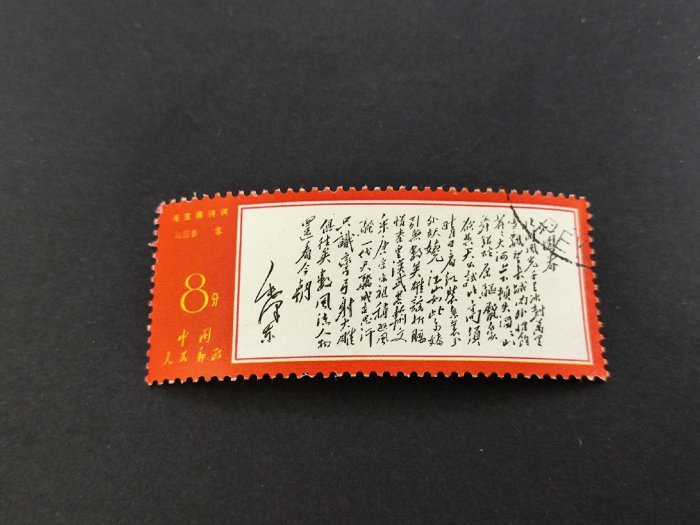 毛主席诗词
沁园春 雪
8分
中国
人民邮政
沁园春
北国风光千里冰封万里
雪飘望长城内外惟馀
莽莽大河上下顿失滔滔山
舞银蛇原驱腊象
欲与天公试比高须
晴日看红装素裹分
外妖娆江山如此多娇
引无数英雄竞折腰
惜秦皇汉武略输文
采唐宗宋祖稍逊风
骚一代天骄成吉思汗
只识弯弓射大雕
俱往矣数风流人物
还看今朝
毛泽东